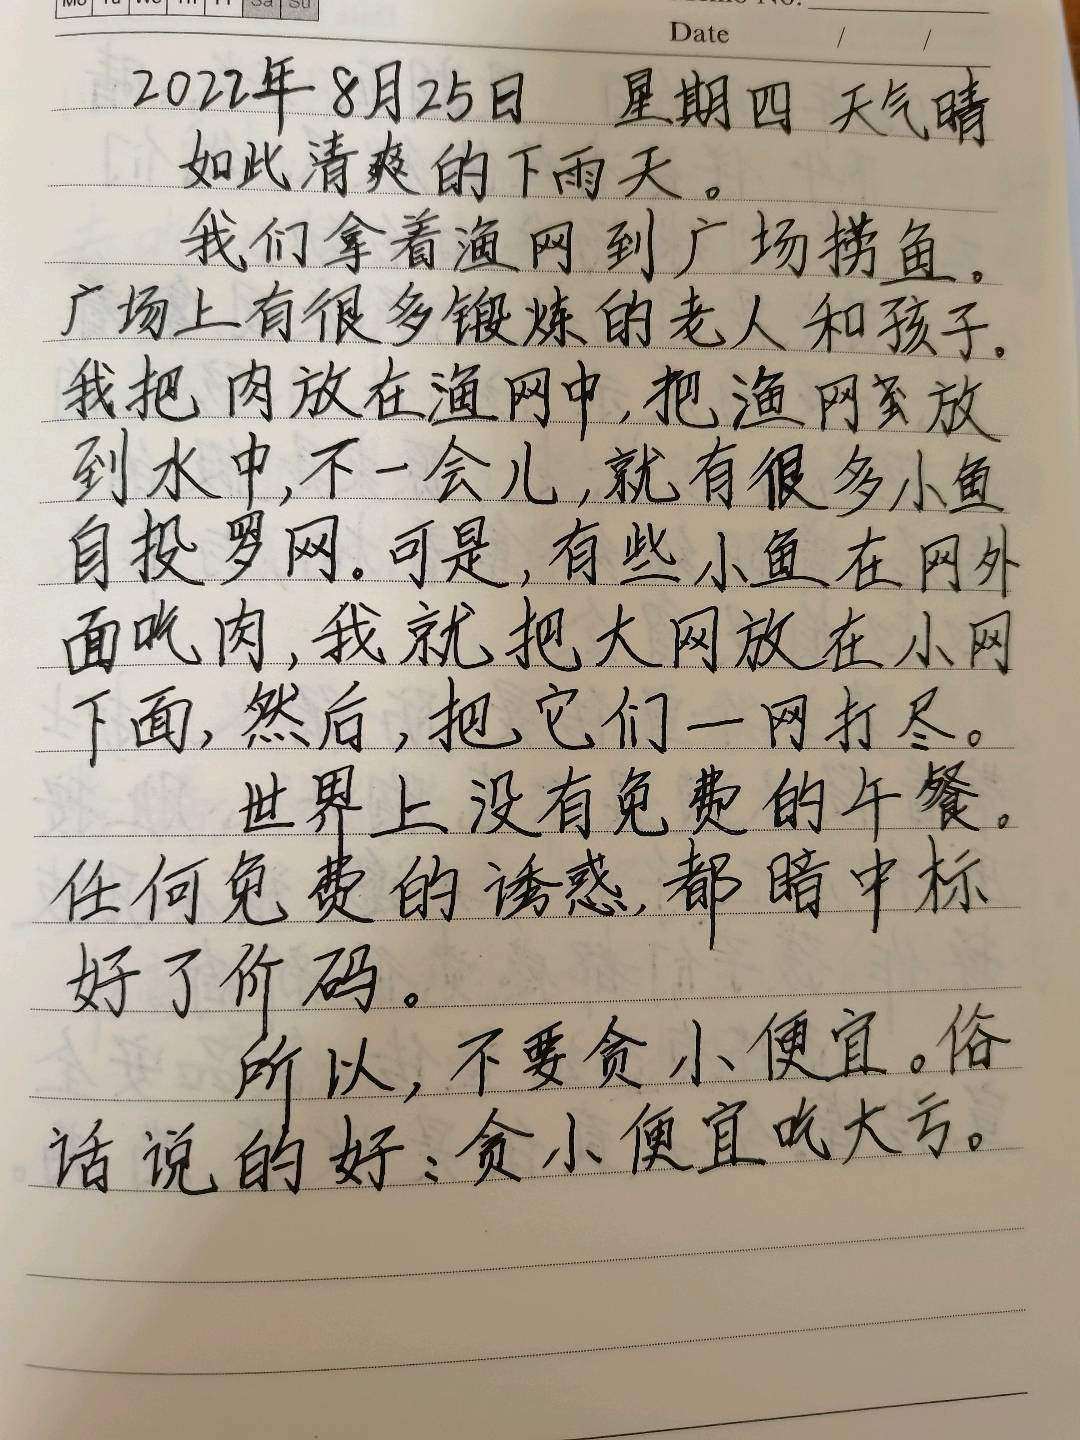 Mo Tu We Th Fr Sa Su
Memo No.
Date / /
2022年8月25日 星期四 天气晴
如此清爽的下雨天。
我们拿着渔网到广场捞鱼。
广场上有很多锻炼的老人和孩子。
我把肉放在渔网中,把渔网放
到水中,不一会儿,就有很多小鱼
自投罗网。可是,有些小鱼在网外
面吃肉,我就把大网放在小网
下面,然后,把它们一网打尽。
世界上没有免费的午餐。
任何免费的诱惑,都暗中标
好了价码。
所以,不要贪小便宜。俗
话说的好:贪小便宜吃大亏。